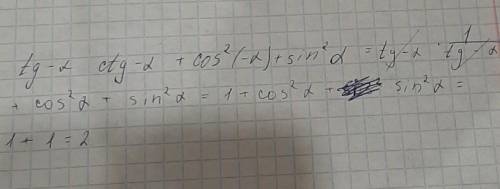 tg-α ctg-α + cos²(-α) + sin²α = tg-α · 1/tg-α
+ cos²α + sin²α = 1 + cos²α + sin²α =
1 + 1 = 2